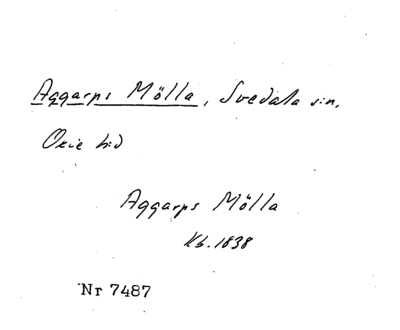 Aggarps Mölla, Svedala sn,
Oxie hd
Aggarps Mölla
Kb. 1838
Nr 7487